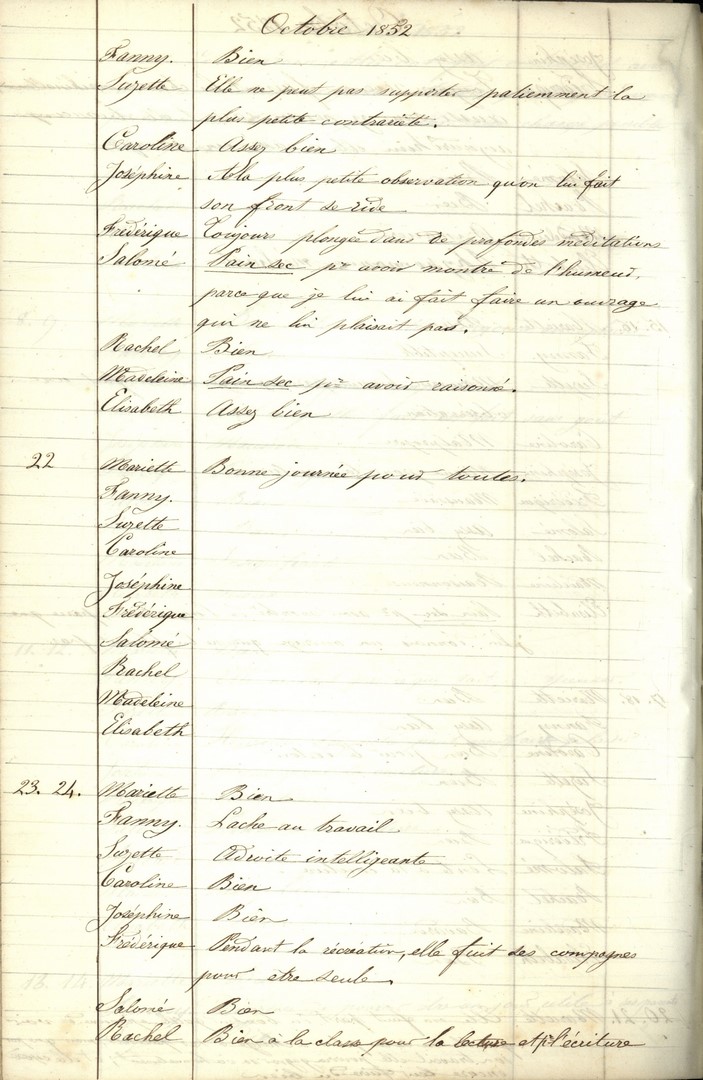 Octobre 1852
Fanny. Bien
Suzette Elle ne peut pas supporter patiemment la
plus petite contrariété.
Caroline Assez bien
Joséphine A la plus petite observation qu'on lui fait
son front se ride
Frédérique Toujours plongée dans de profondes méditations
Salomé Pain sec pr avoir montré de l'humeur,
parce que je lui ai fait faire un ouvrage
qui ne lui plaisait pas.
Rachel Bien
Madeleine Pain sec pr avoir raisonné.
Elisabeth Assez bien
22 Mariette Bonne journée pour toutes.
Fanny.
Suzette
Caroline
Joséphine
Frédérique
Salomé
Rachel
Madeleine
Elisabeth
23. 24. Mariette Bien
Fanny. Lache au travail
Suzette Adroite intelligeante
Caroline Bien
Joséphine Bien
Frédérique Pendant la récréation, elle fuit ses compagnes
pour etre seule
Salomé Bien
Rachel Bien à la classe pour la lecture et pr l'écriture